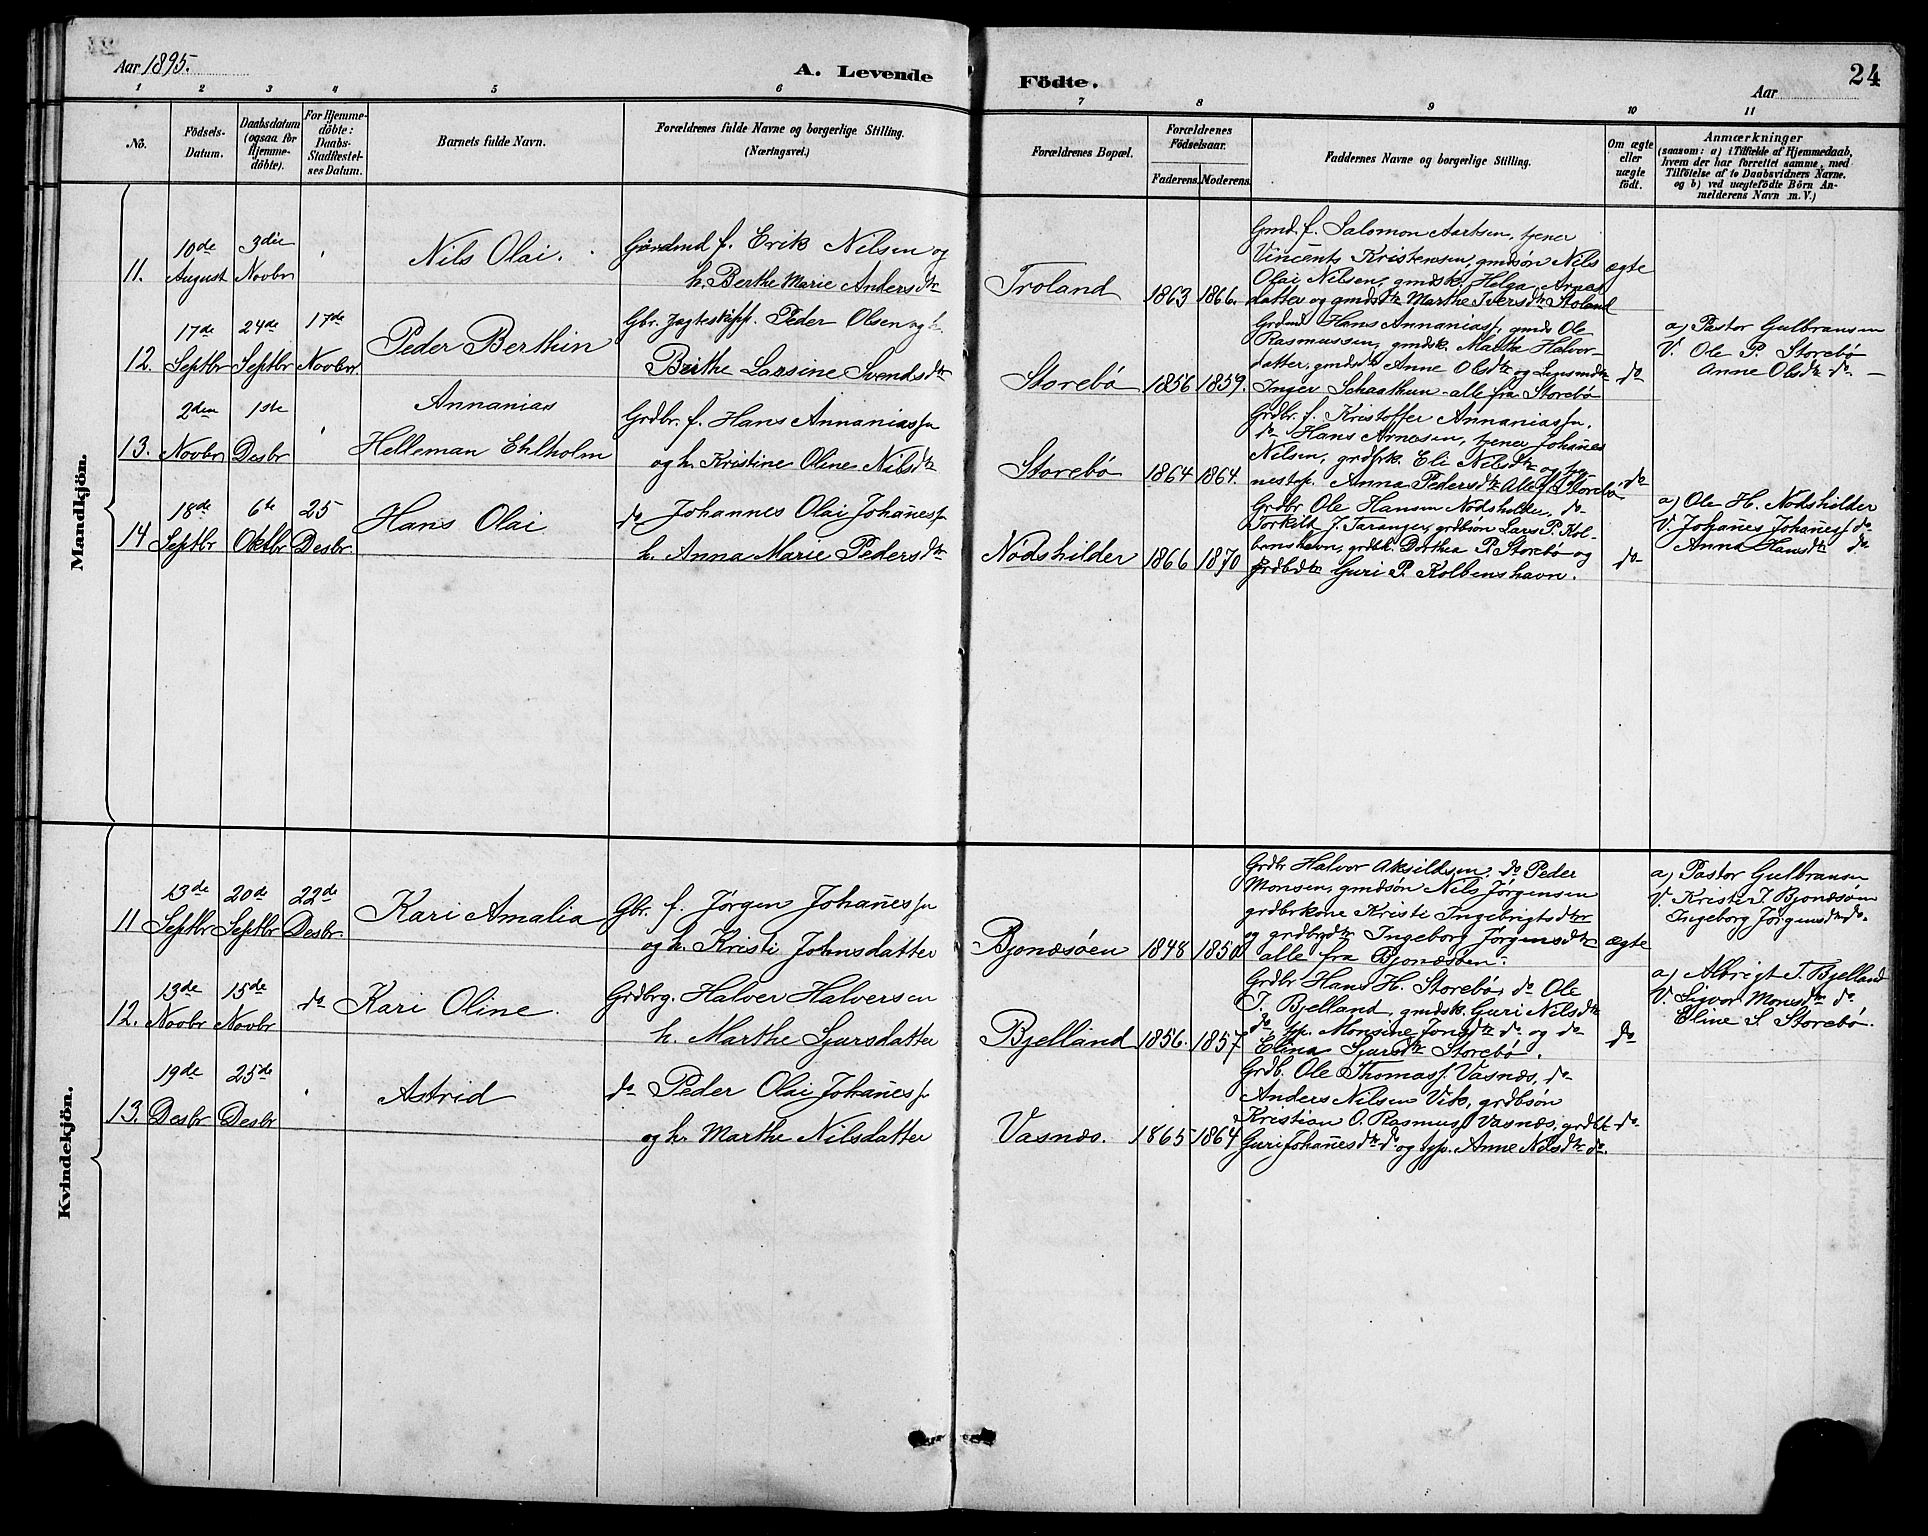 Aar 1895.
A. Levende
Födte.
24
Aar
1 2 3 4 5 6 7 8 9 10 11
No.
Födsels-
Datum.
Daabsdatum
(ogsaa for
Hjemme-
döbte).
For Hjemme-
döbte:
Daabs-
Stadfæstel-
ses Datum.
Barnets fulde Navn.
Forældrenes fulde Navne og borgerlige Stilling.
(Næringsvei.)
Forældrenes Bopæl.
Forældrenes
Födselsaar.
Faderens. Moderens.
Faddernes Navne og borgerlige Stilling.
Om ægte
eller
uægte
födt.
Anmærkninger
(saasom: a) i Tilfælde af Hjemmedaab,
hvem der har forrettet samme, med
Tilföielse af to Daabsvidners Navne.
og b) ved uægtefödte Börn An-
melderens Navn m. V.)
Mandkjön.
11.
10de
August
3die
Novbr
Nils Olai.
Gårdmd f. Erik Nilsen og
h. Berthe Marie Andersdtr
Troland
1863 1866.
Gmd. f. Salomon Aartsen, tjener
Vincents Kristensen, gmdsön Nils
Olai Nilsen, gmdsk. Helga Arnes
datter og gmdsdtr Marthe Iversdtr Stoland
ægte
12.
17de
Septbr
24de
Septbr
17de
Novbr
Peder Berthin
Gbr. Jagteskipp. Peder Olsen og h.
Brithe Larsine Svendsdtr
Storebø
1856 1859.
Grdmd Hans Annanias, gmds Ole
Rasmussen, gmdsk. Martha Halvor-
datter, gmdsdtr Anne Olsdtr og
Inger Schaathun - alle fra Storebø
do
a) Pastor Gulbransen
V. Ole P. Storebø
Anne Olsdtr do. —
13.
2den
Novbr
1ste
Desbr
Annanias
Helleman Ehlholm
Grdbr. f. Hans Annaniassn
og h. Kristine Oline Nilsdtr
Storebø
1864 1864.
Grdbr. f. Kristoffer Annaniassn.
do Hans Arnesen, tjener Johanes
Nilsen, grdbrk. Eli Nilsdtr og tje-
nestep. Anna Pedersdtr Alle f Storebø
do
14
18de
Septbr
6te
Oktbr
25
Desbr
Hans Olai
do Johannes Olai Johanes
h. Anna Marie Pedersdtr
Nodshilder
1866 1870
Grdbr Ole Hansen Nodshilder, do
Torkild J. Taranger, grdbsön Lars P. Kol-
benshavn, grdbk. Dorthea P. Storebø og
grdbdtr Guri P. Kolbenshavn.
do
a) Ole H. Nodshilder
V. Johanes Johanes do
Anna Hansdtr do
Kvindekjön.
11
13de
Septbr
20de
Septbr
22de
Desbr.
Kari Amalia
Gbr. f. Jørgen Johanessn
og h. Kristi Johnsdatter
Bjonæsøen
1848 1850
Grdbr Halvor Aksildsen, do Peder
Monsen, gmdsön Nils Jørgensen
grdbrkone Kristi Ingebrigtsdter
og grdbrdtr Ingeborg Jørgensdtr
alle fra Bjonæsøen.
ægte
a) Pastor Gulbransen
V. Kristi J. Bjonæsøen
Ingeborg Jørgensdtr do.
12.
13de
Novbr
15de
Novbr
do
Kari Oline
Grdbrg. Halver Halversen
h. Marthe Sjursdatter
Bjelland
1856. 1857
Grdbr Hans H. Storebø, do Ole
T. Bjelland, gmdsk. Guri Nilsdtr
do, tjp. Monsine Jonsdtr do og do
Elina Sjursdtr Storebø.
do
a) Albrigt T. Bjelland
V. Sigvor Monsdtr do
Eline S. Storebø.
13.
19de
Desbr
25de
Desbr
Astrid
do Peder Olai Johanes
og h. Marthe Nilsdatter
Vasnæs.
1865 1864
Grdb. Ole Thomas Vasnæs, do
Anders Nilsen Vik, grdbsön
Kristian O. Rasmus Vasnæs, grdbk
Guri Johanesdtr do og tjp. Anne Nilsdtr do.
do